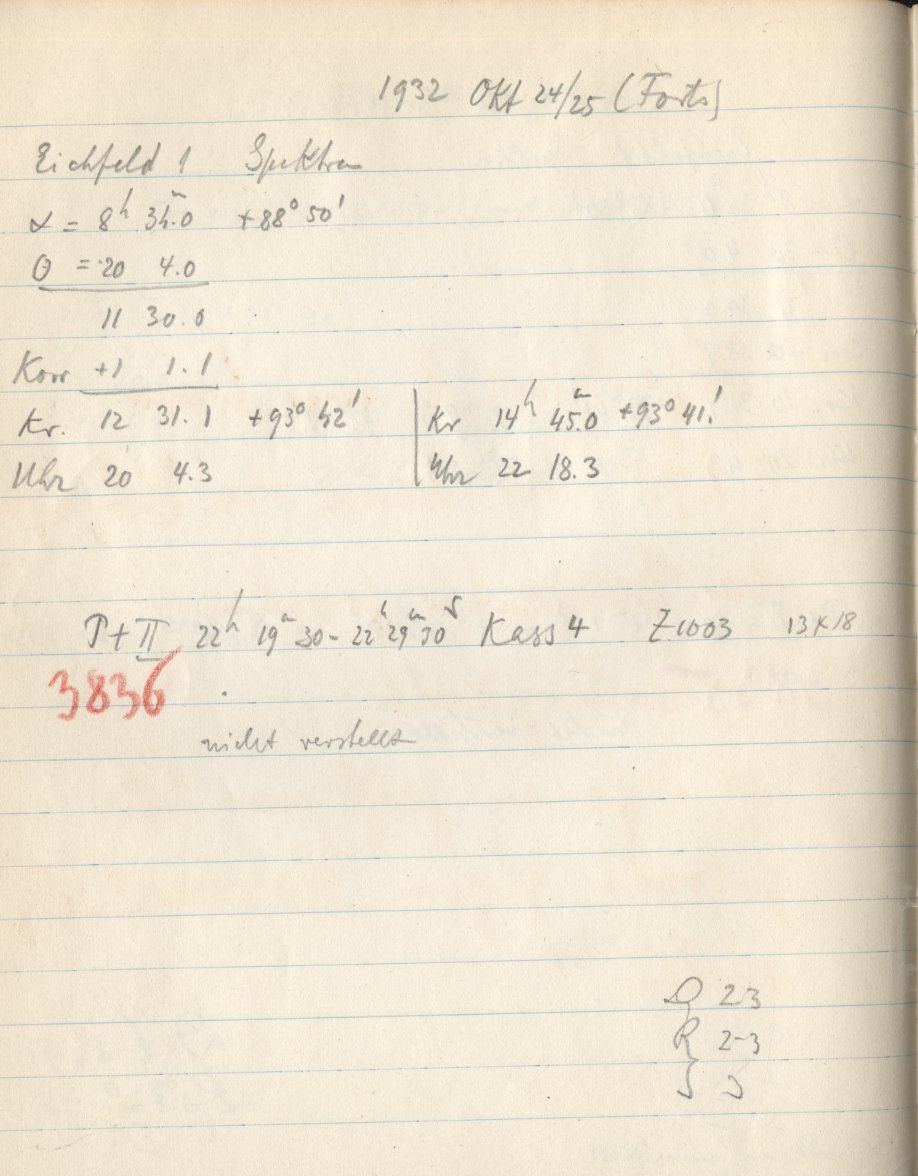 1932 Okt 24/25 (Forts)
Eichfeld 1 Spektra
α = 8h 34m.0 +88° 50'
θ = 20 4.0
11 30.0
Korr +1 1.1
Kr. 12 31.1 +93° 42'
Uhr 20 4.3
Kr 14h 45m.0 +93° 41'
Uhr 22 18.3
P+II 22h 19m 30 - 22h 29m 30s Kass 4 Z1003 13x18
3836
nicht verstellt
D 2-3
R 2-3